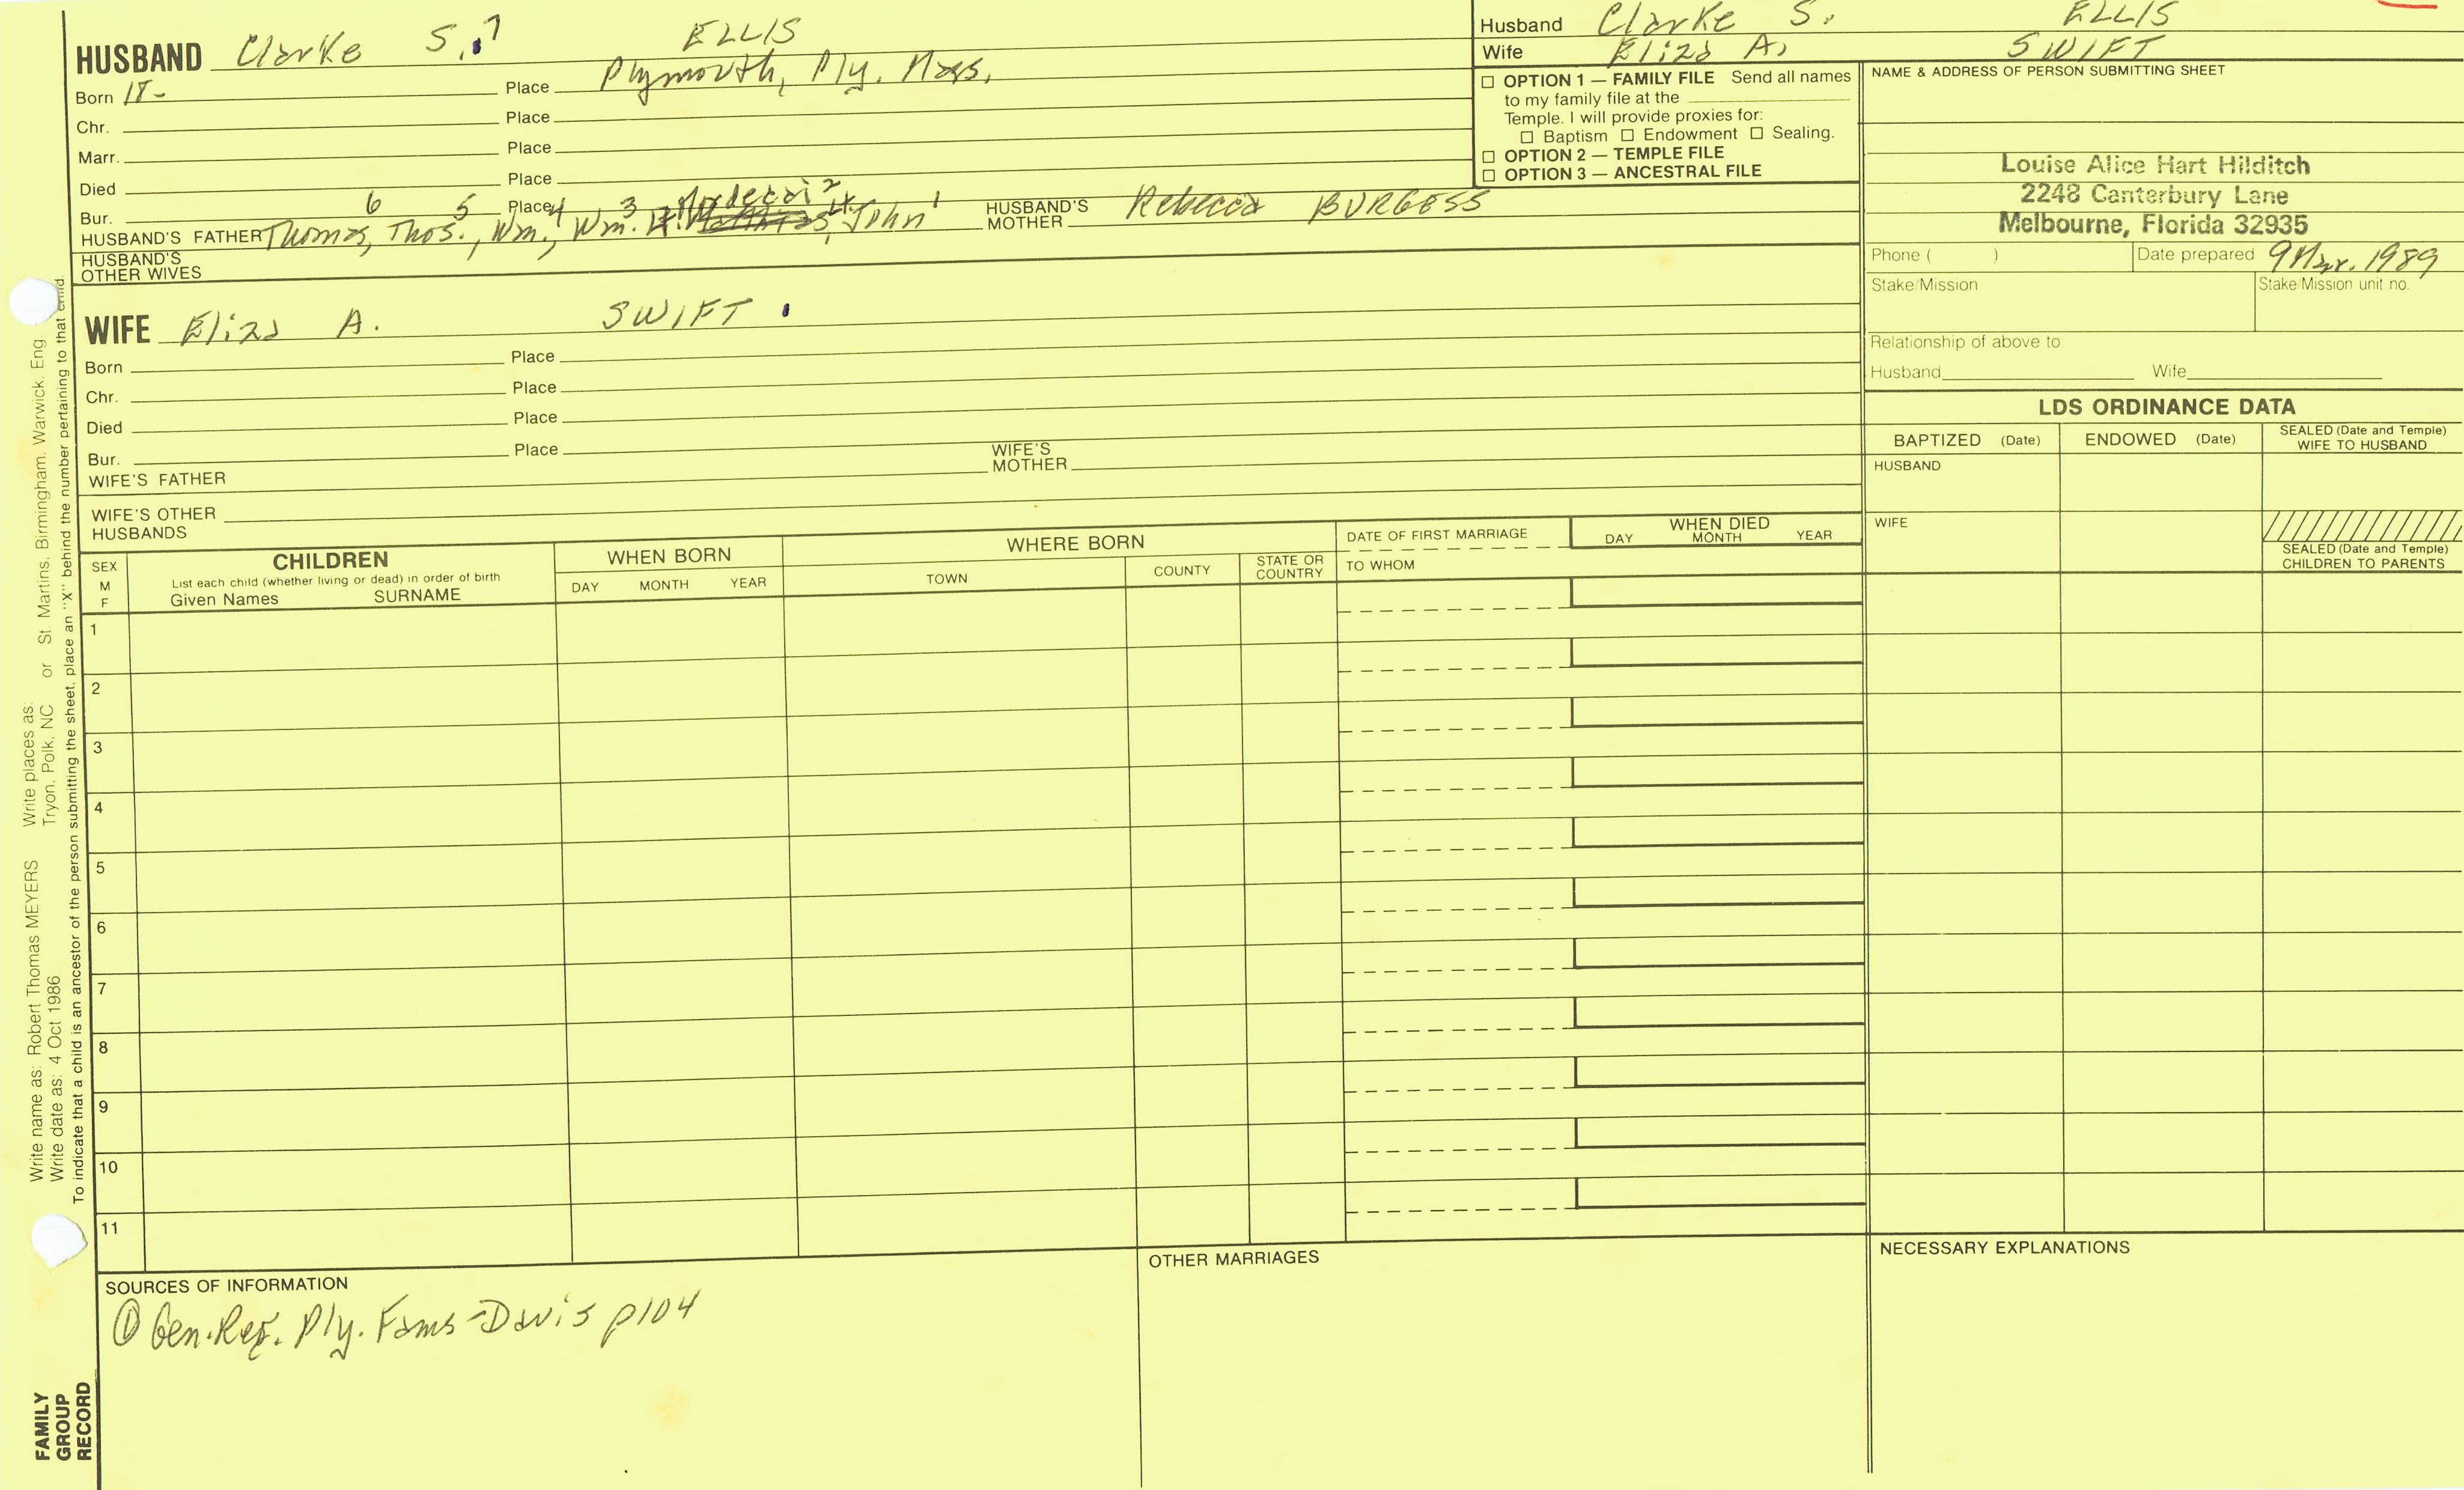 HUSBAND Clarke S.7 ELLIS
Born 18- Place Plymouth, Ply. Mass.
Chr. Place
Marr. Place
Died Place
Bur. Place
HUSBAND'S FATHER Thomas,6 Thos.,5 Wm.,4 Wm.3 Mordecai2 Lt. John1 HUSBAND'S MOTHER Rebecca BURGESS
HUSBAND'S OTHER WIVES
WIFE Eliza A. SWIFT
Born Place
Chr. Place
Died Place
Bur. Place
WIFE'S FATHER WIFE'S MOTHER
WIFE'S OTHER HUSBANDS
Husband Clarke S. ELLIS
Wife Eliza A. SWIFT
☐ OPTION 1 — FAMILY FILE Send all names
to my family file at the
Temple. I will provide proxies for:
☐ Baptism ☐ Endowment ☐ Sealing.
☐ OPTION 2 — TEMPLE FILE
☐ OPTION 3 — ANCESTRAL FILE
NAME & ADDRESS OF PERSON SUBMITTING SHEET
Louise Alice Hart Hilditch
2248 Canterbury Lane
Melbourne, Florida 32935
Phone ( ) Date prepared 9 Mar. 1989
Stake/Mission Stake/Mission unit no.
Relationship of above to:
Husband Wife
LDS ORDINANCE DATA
BAPTIZED (Date) ENDOWED (Date) SEALED (Date and Temple) WIFE TO HUSBAND
HUSBAND
WIFE
SEALED (Date and Temple) CHILDREN TO PARENTS
SEX M F
CHILDREN
List each child (whether living or dead) in order of birth
Given Names SURNAME
WHEN BORN
DAY MONTH YEAR
WHERE BORN
TOWN COUNTY STATE OR COUNTRY
DATE OF FIRST MARRIAGE
TO WHOM
WHEN DIED
DAY MONTH YEAR
1
2
3
4
5
6
7
8
9
10
11
SOURCES OF INFORMATION
① Gen. Reg. Ply. Fams - Davis p104
OTHER MARRIAGES
NECESSARY EXPLANATIONS
Write name as: Robert Thomas MEYERS Write places as:
Write date as: 4 Oct 1986 Tryon, Polk, NC or St. Martins, Birmingham, Warwick, Eng
To indicate that a child is an ancestor of the person submitting the sheet, place an "X" behind the number pertaining to that child.
FAMILY
GROUP
RECORD